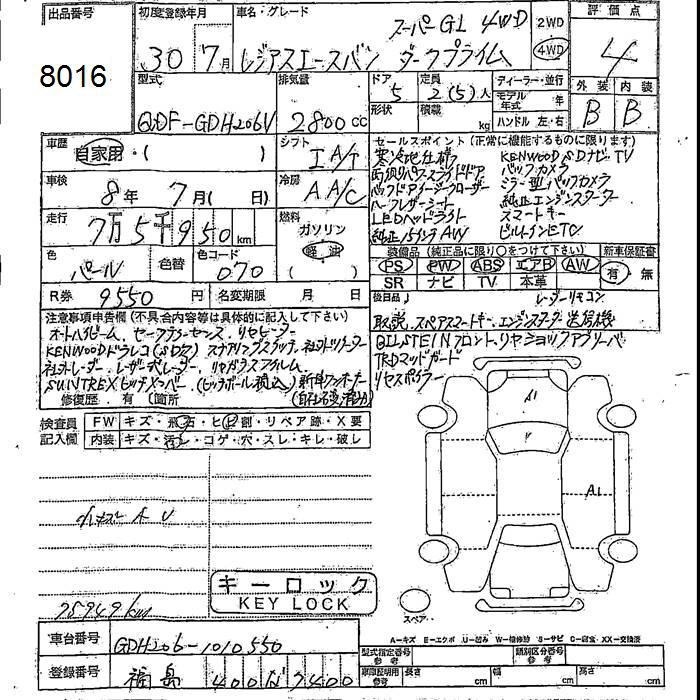 出品番号
8016
初度登録年月
30年7月
車名・グレード
スーパーGL 4WD
レジアスエースバン ダークプライム
2WD
4WD
評価点
4
外装 内装
B B
型式
QDF-GDH206V
排気量
2800cc
ドア
5
形状
定員
2(5)人
積載
kg
ディーラー・並行
モデル年式 年
ハンドル 左・右
車歴
自家用・( )
シフト
IA/T
車検
8年 7月( 日)
冷房
AA/C
走行
7万5千950km
燃料
ガソリン
軽油
( )
色
パール
色替
色コード
070
R券
9550円
名変期限 月 日
セールスポイント(正常に機能するものに限ります)
寒冷地仕様
両側パワースライドドア
バックドアイージークローザー
ハーフレザーシート
LEDヘッドライト
純正15インチAW
KENWOOD SDナビ TV
バックカメラ
ミラー型バックカメラ
純正エンジンスターター
スマートキー
ビルトインETC
装備品(純正品に限り○をつけて下さい)
新車保証書
PS PW ABS エアB AW
有・無
SR ナビ TV 本革
後日品)
レーダーリモコン
取説、スペアスマートキー、エンジンスターター送信機
注意事項申告欄(不具合内容等は具体的に記入して下さい)
オートハイビーム セーフティーセンス リヤヒーター
KENWOODドラレコ
社外レーダー レーザー式レーダー リヤガラスフィルム
SUNTREXヒッチメンバー(ヒッチボール積込)新車ワンオーナー
BILSTEINフロント、リヤショックアブソーバ
TRDマッドガード
リヤスポイラー
修復歴 有(箇所
検査員記入欄
FW キズ・飛石・ヒビ割・リペア跡・X要
内装 キズ・汚れ・コゲ・穴・スレ・キレ・破レ
小キズ A U
75949km
キーロック
KEY LOCK
A1
Y
A1
スペアー
A-キズ E-エクボ U-凹み W-補修跡 S-サビ C-腐食 XX-交換済
車台番号
GDH206-1010550
登録番号
福島 400 な 7400
型式指定番号
参考
類別区分番号
参考
車庫証明用
参考
長さ cm
幅 cm
高さ cm